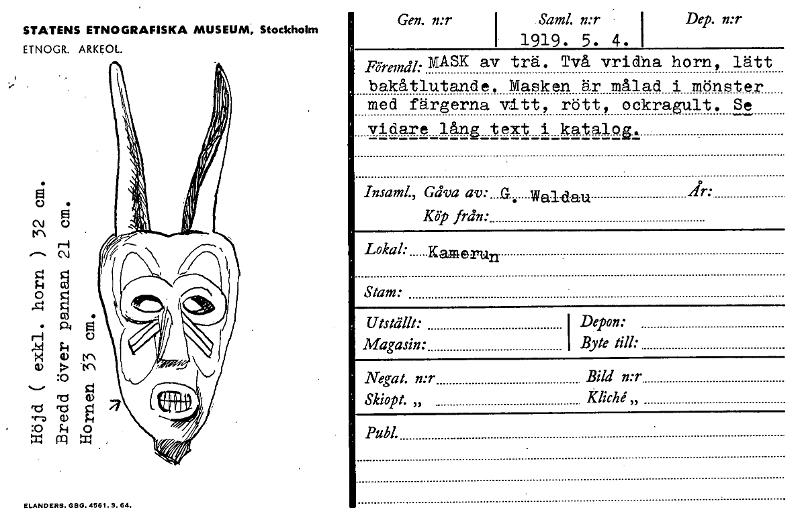 STATENS ETNOGRAFISKA MUSEUM, Stockholm
ETNOGR. ARKEOL.
Höjd ( exkl. horn ) 32 cm.
Bredd över pannan 21 cm.
Hornen 33 cm.
ELANDERS. GBG. 4561. 3. 64.
Gen. n:r
Saml. n:r
Dep. n:r
1919. 5. 4.
Föremål: MASK av trä. Två vridna horn, lätt
bakåtlutande. Masken är målad i mönster
med färgerna vitt, rött, ockragult. Se
vidare lång text i katalog.
Insaml., Gåva av: G. Waldau År:
Köp från:
Lokal: Kamerun
Stam:
Utställt: Depon:
Magasin: Byte till:
Negat. n:r Bild n:r
Skiopt. „ Kliché „
Publ.